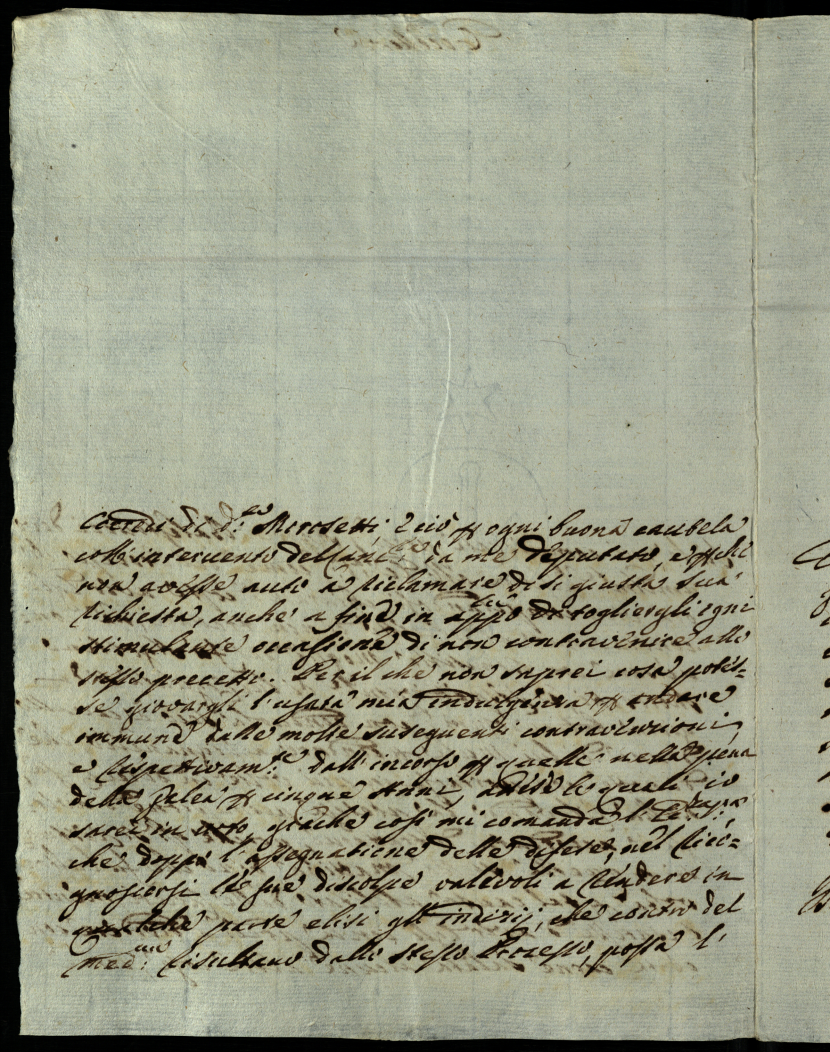 di d.º Morosetti, e ciò p ogni buona cautela
coll'intervento dell' da me deputato, e p chè
non avesse auto a reclamare di sì giusta sua
richiesta, anche a fine in app.º di togliergli ogni
stimulante occasione di non contravenire allo
stesso precetto. Per il che non saprei cosa potes=
se giovargli l'usata mia indulgenza p andare
immune dalle molte susseguenti contravenzioni,
e rispettivam.te dall'incorso p quelle nella pena
della galea p cinque Anni, attese le quali io
sarei in voto, qualche così mi comanda l'
che doppo l'assegnatione delle difese, nel rico=
gnoscersi le sue discolpe valevoli a rendere in
qualche parte elisi gli indizij, che contro del
med.mo risultano dallo stesso Processo, possa l'